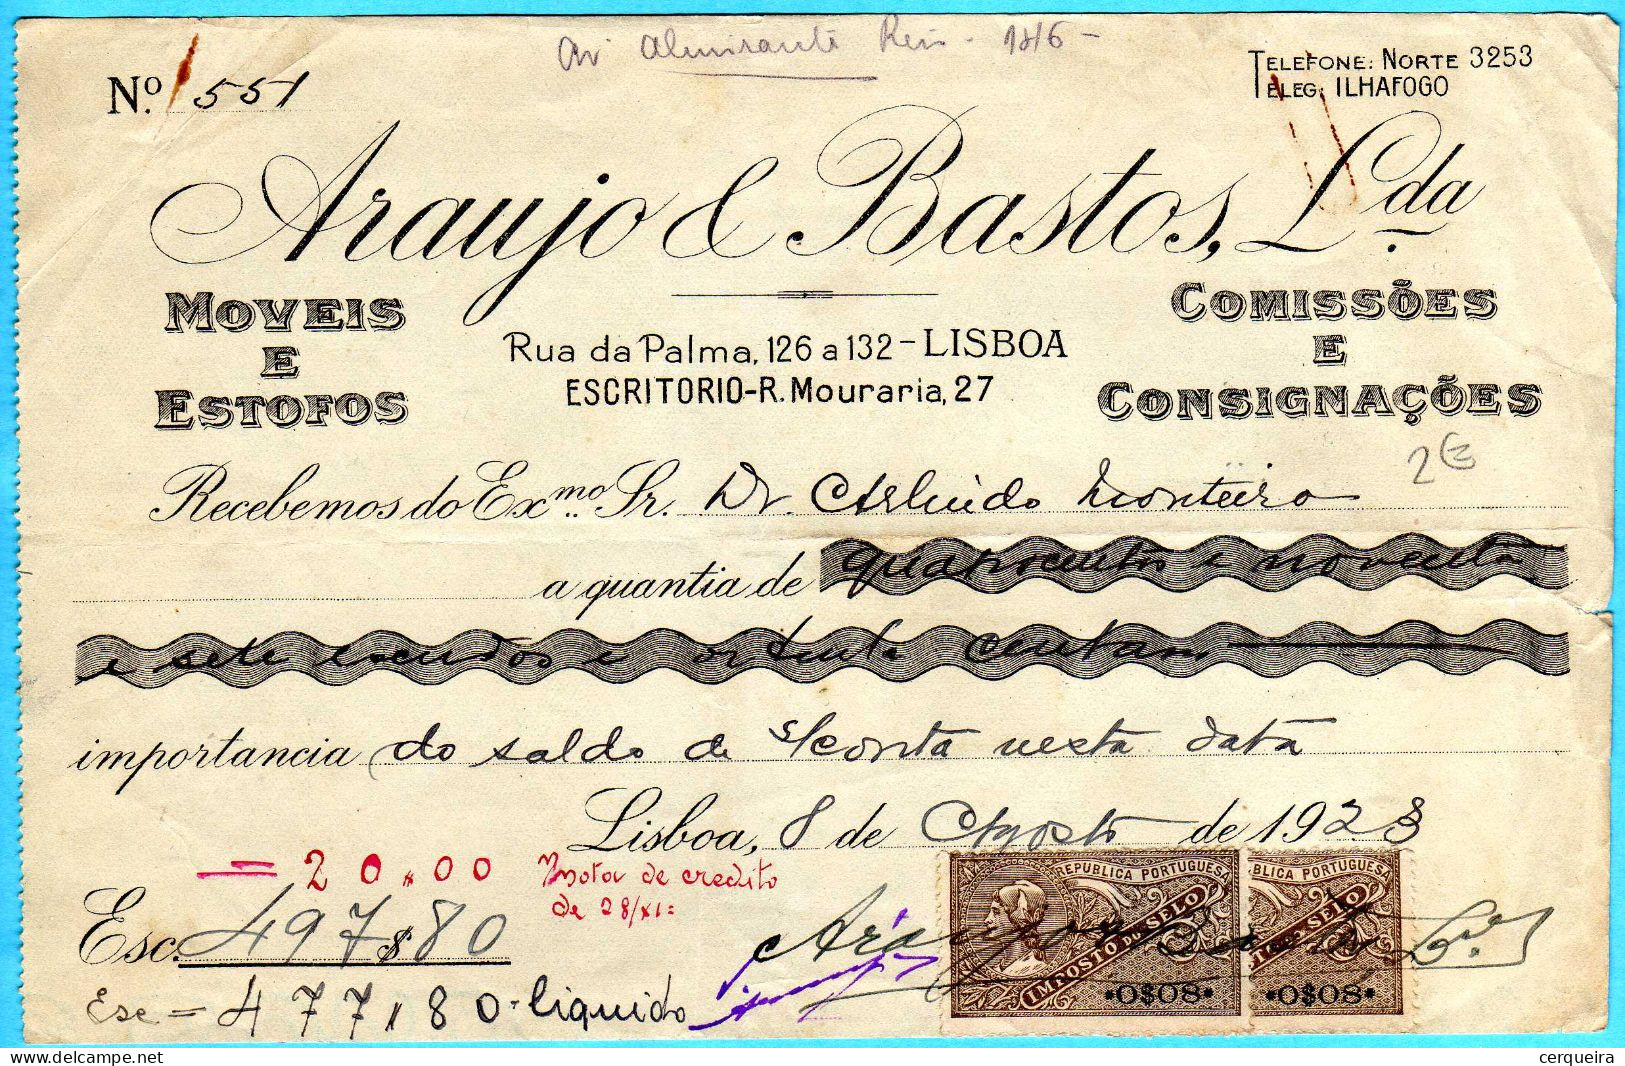 Av Almirante Reis - 146 -
Nº 551
TELEFONE: NORTE 3253
TELEG: ILHAFOGO
Araujo & Bastos, Lda
MOVEIS E ESTOFOS
Rua da Palma, 126 a 132 - LISBOA
ESCRITORIO-R. Mouraria, 27
COMISSÕES E CONSIGNAÇÕES
2€
Recebemos do Exmo. Sr. Dr. Arlindo Monteiro
a quantia de quatrocentos e noventa
e sete escudos e oitenta centavos
importancia do saldo de s/conta nesta data
Lisboa, 8 de Agosto de 1923
= 20.00 de credito
de 28/XI=
Esc. 497$80
Esc = 477$80 liquido
Araujo Bastos Lda
REPUBLICA PORTUGUESA
IMPOSTO DO SELO
0$08
BLICA PORTUGUESA
SELO
0$08
cerqueira